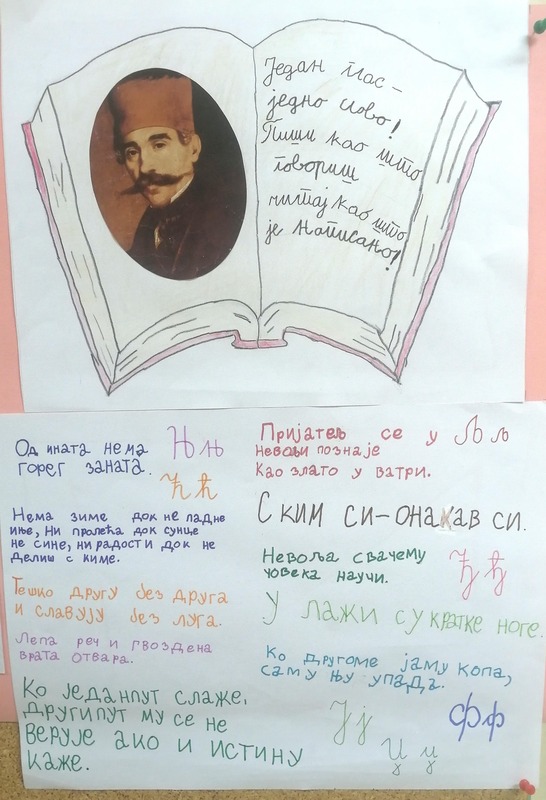 Један глас –
једно слово!
Пиши као што
говориш
читај као што
је написано!
Од ината нема
горег заната.
Њ њ
Ћ ћ
Нема зиме док не падне
иње, ни пролећа док сунце
не сине, ни радости док не
делиш с киме.
Тешко другу без друга
и славују без луга.
Лепа реч и гвоздена
врата отвара.
Ко једанпут слаже,
други пут му се не
верује ако и истину
каже.
Пријатељ се у
невољи познаје
Као злато у ватри.
Љ љ
С ким си – онакав си.
Невоља свачему
човека научи.
Ђ ђ
У лажи су кратке ноге.
Ко другоме јаму копа,
сам у њу упада.
Ј ј
Џ џ
Ф ф